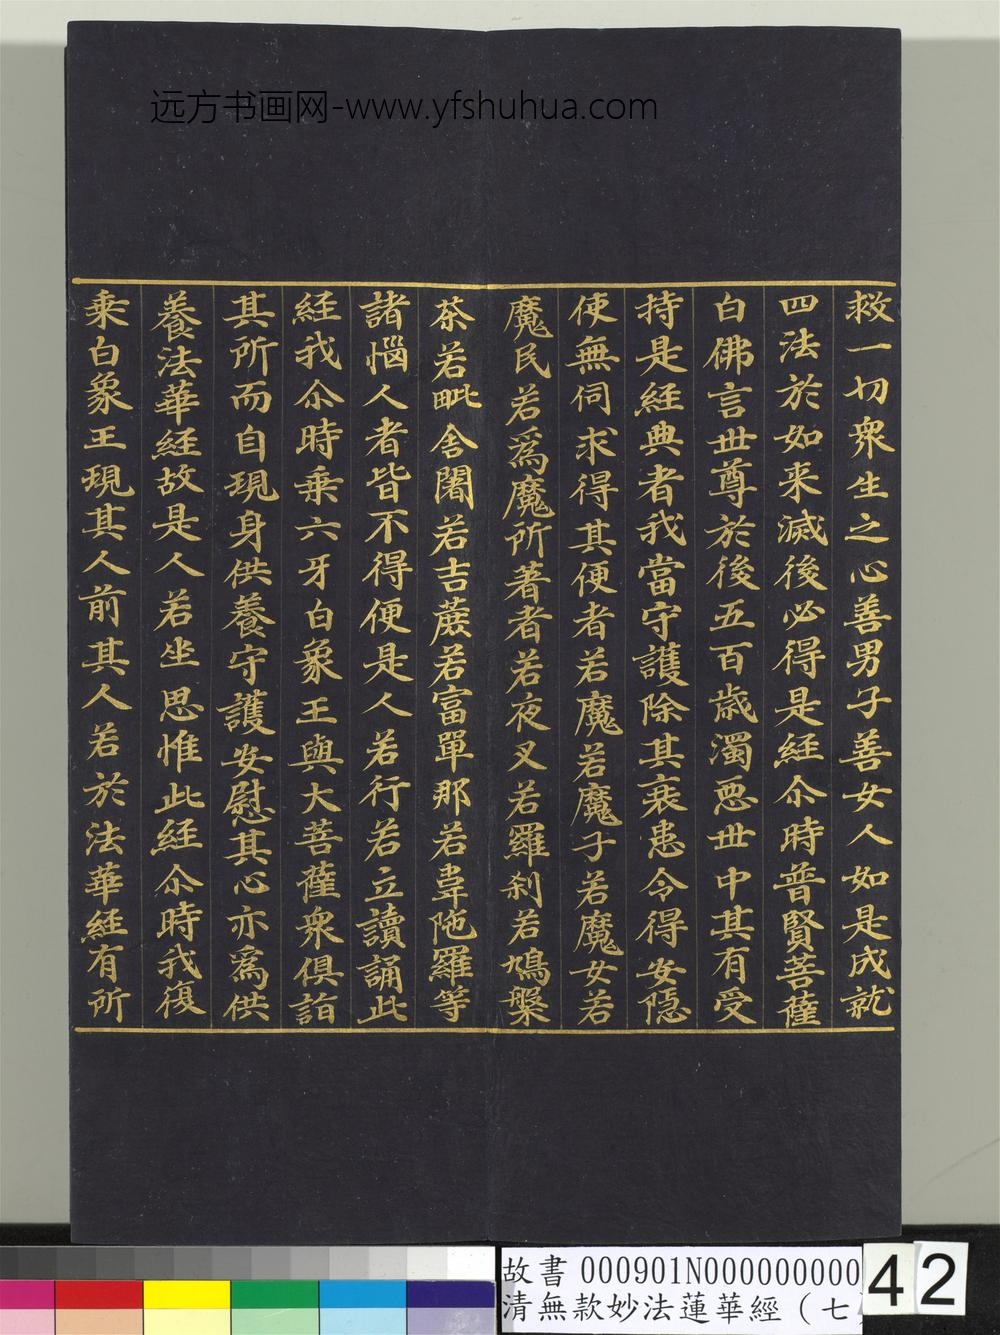 远方书画网-www.yfshuhua.com
救一切衆生之心善男子善女人如是成就
四法於如来滅後必得是経尒時普賢菩薩
白佛言世尊於後五百歳濁惡世中其有受
持是経典者我當守護除其衰患令得安隱
使無伺求得其便者若魔若魔子若魔女若
魔民若爲魔所著者若夜叉若羅刹若鳩槃
荼若毗舍闍若吉蔗若富單那若韋陁羅等
諸惱人者皆不得便是人若行若立讀誦此
経我尒時乗六牙白象王與大菩薩衆俱詣
其所而自現身供養守護安慰其心亦爲供
養法華経故是人若坐思惟此経尒時我復
乗白象王現其人前其人若於法華経有所
故書 000901N000000000
清無款妙法蓮華經（七
42